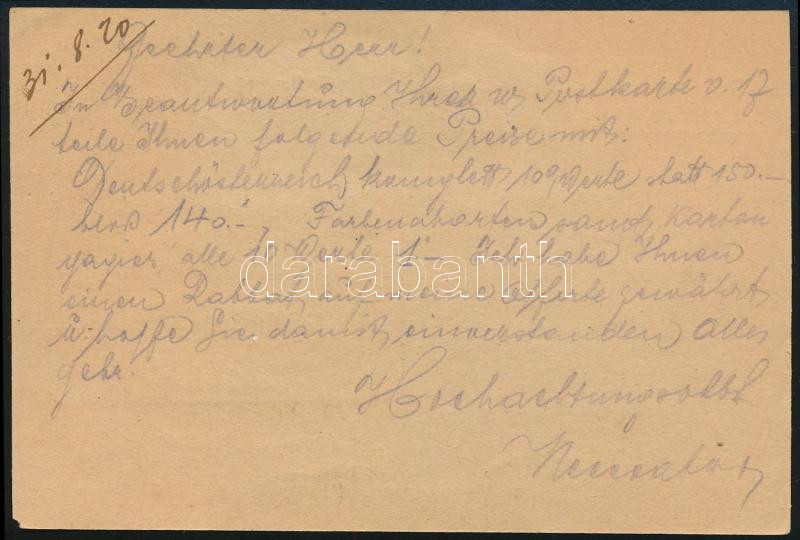 31. 8. 20
Geehrter Herr!
In Beantwortung Ihrer w. Postkarte v. 17
teile Ihnen folgende Preise mit:
Deutschösterreich komplett 10 Werte statt 150.-
bloß 140.-, Farbenabarten, sand, Karton
papier alle 10 Werte 1'- Ich habe Ihnen
einen Rabatt auf meine Offerte gewährt
u. hoffe Sie damit einverstanden alles
gehr.
Hochachtungsvollst
darabanth